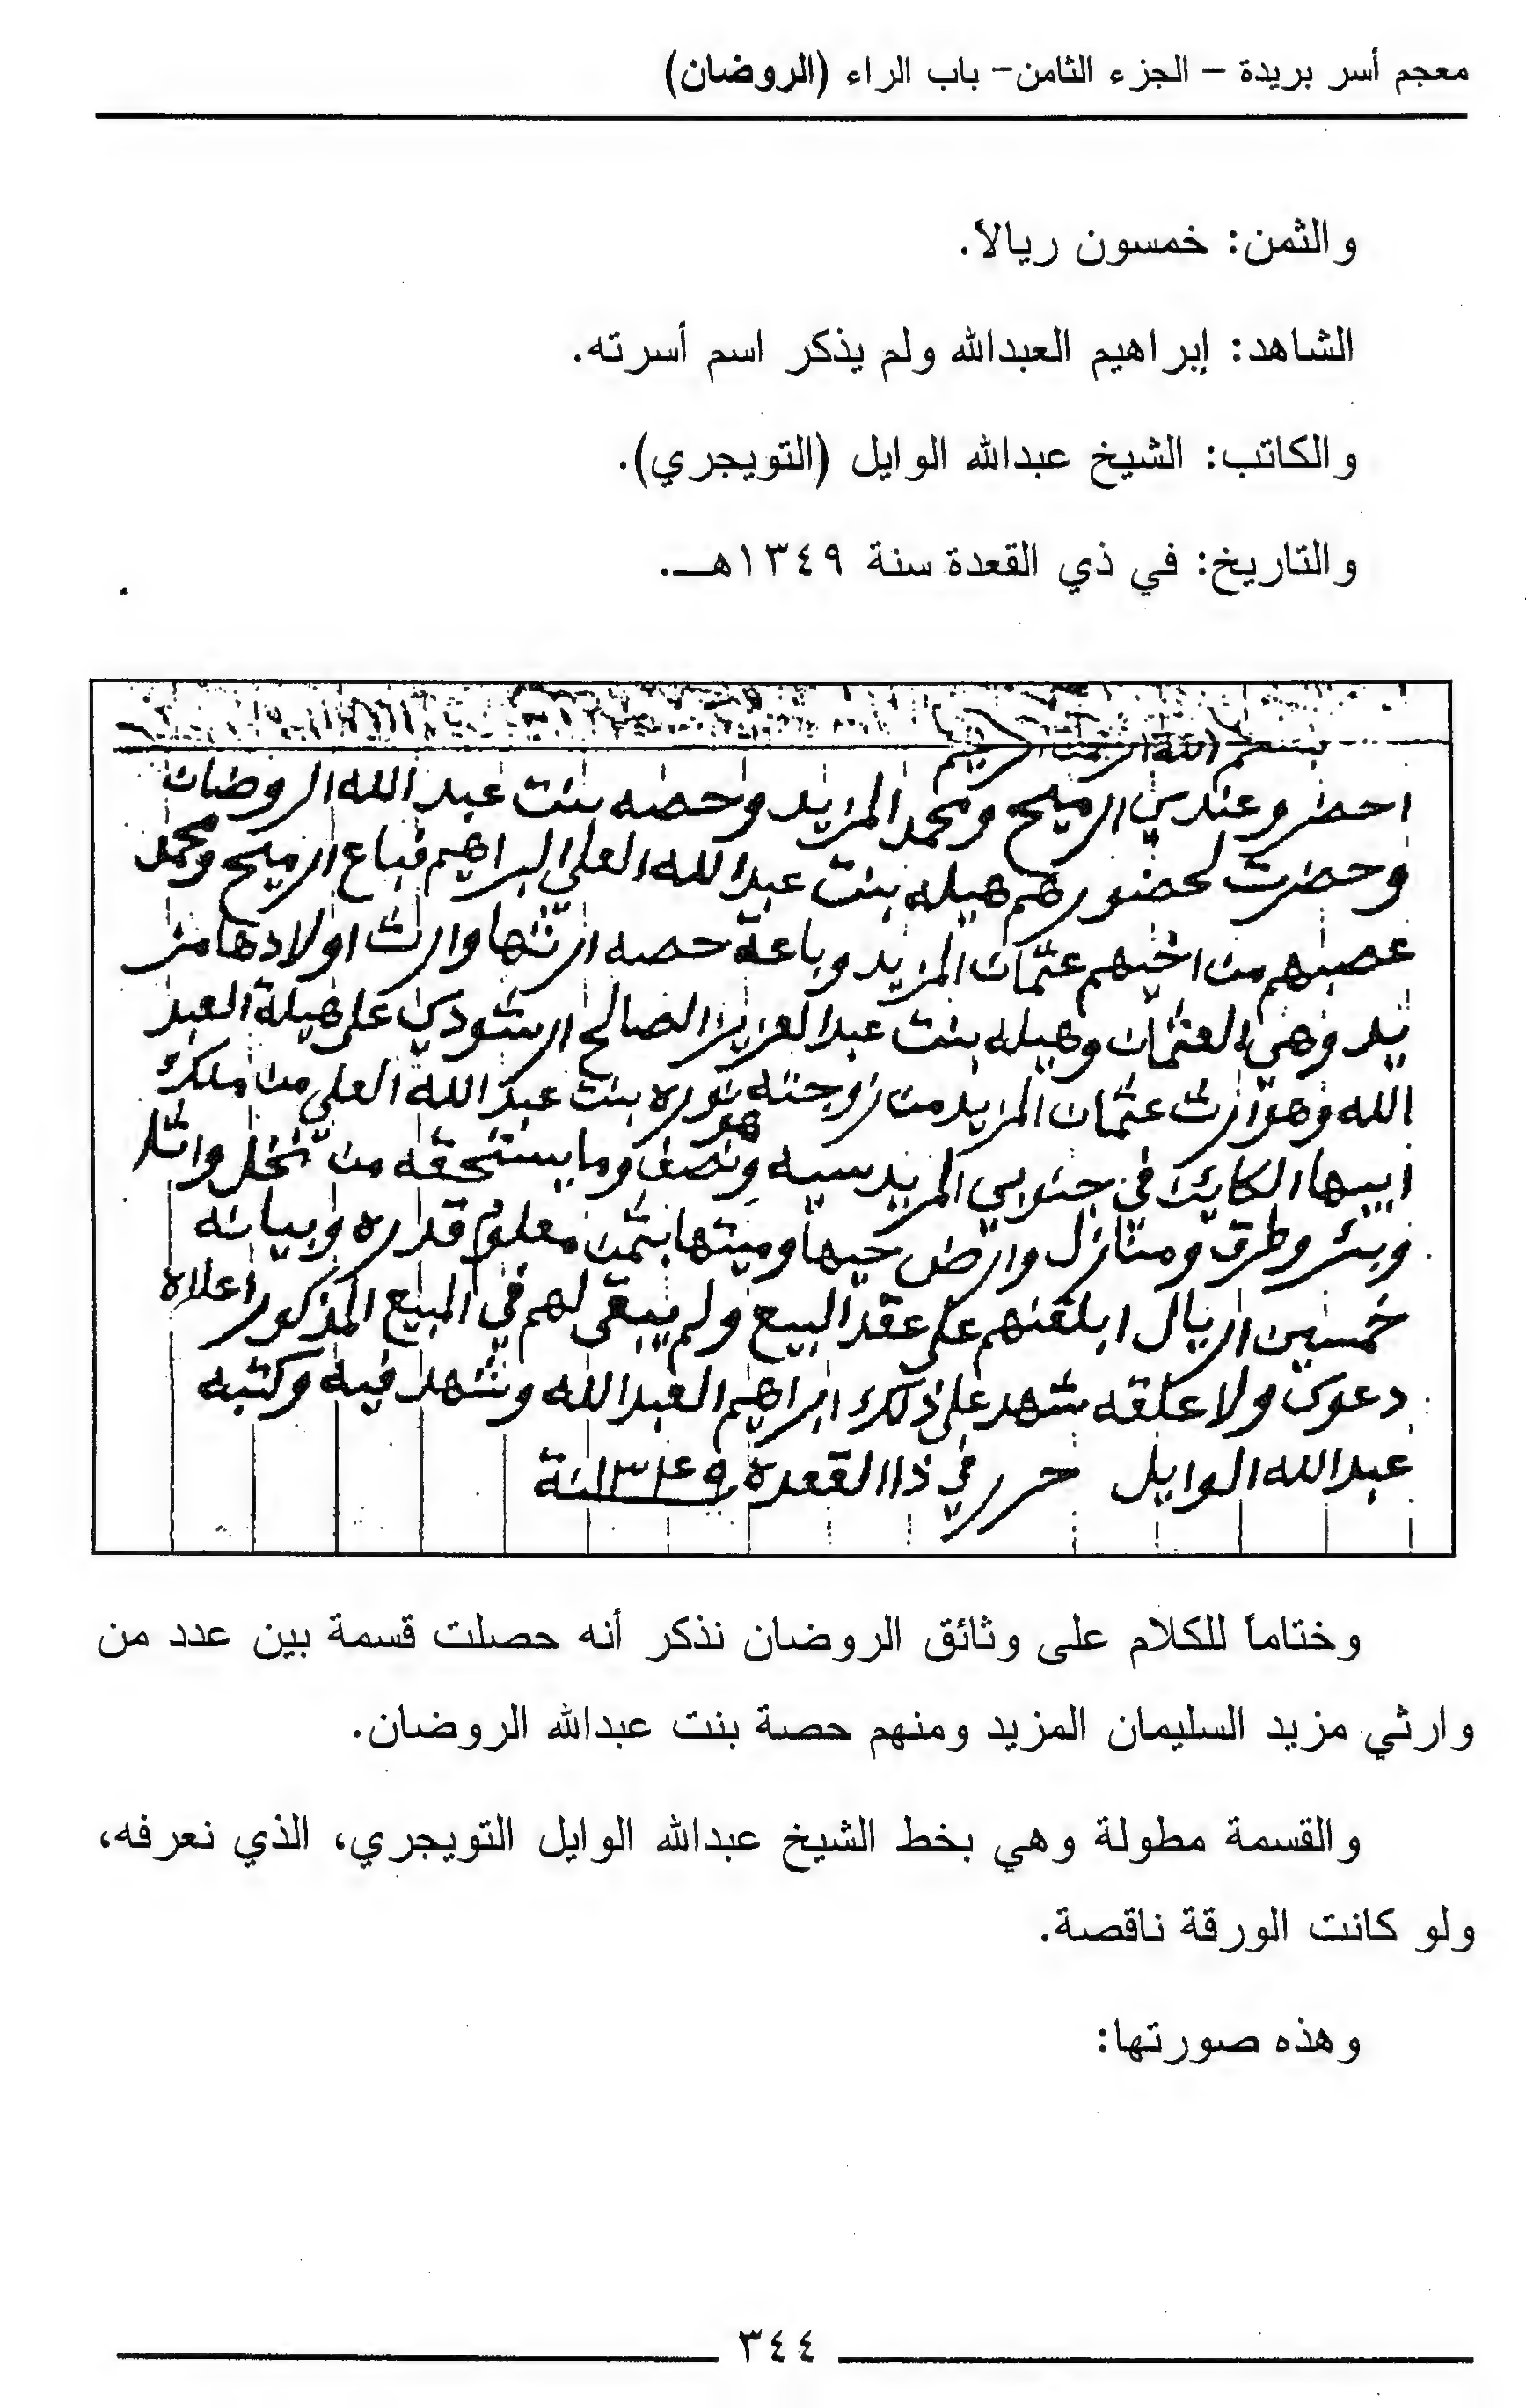 معجم أسر بريدة – الجزء الثامن– باب الراء (الروضان)
والثمن: خمسون ريالاً.
الشاهد: إبراهيم العبدالله ولم يذكر اسم أسرته.
والكاتب: الشيخ عبدالله الوايل (التويجري).
والتاريخ: في ذي القعدة سنة ١٣٤٩هـ.
بسم الله الرحمن الرحيم
احضرو عندي الرميح ومحمد المزيد وحصه بنت عبد الله الروضان
وحضرت لحضورهم هيله بنت عبدالله العلي البراهيم فباع الرميح ومحمد
عصبهم من اخيهم عثمان المزيد وباعة حصه ارثها وارث اولادها من
يد وهي العثمان وهيله بنت عبدالعزيز الصالح الرشودي على هيلة العبد
الله وهو ارث عثمان المزيد من زوجته نوره بنت عبد الله العلي من ملك
ابيها الكاين في جنوبي المريدسيه وهو نصف وما يستحقه من نخل واثل
وبئر وطرق ومنازل وارض حيها وميتها بثمن معلوم قداره وبيانه
خمسين اريال ابلغنهم على عقد البيع ولم يبقى لهم في المبيع المذكور اعلاه
دعوى ولا علقه شهد على ذلك ابراهيم العبدالله وشهد فيه وكتبه
عبدالله الوايل حرر في ذا القعدة ١٣٤٩
وختاماً للكلام على وثائق الروضان نذكر أنه حصلت قسمة بين عدد من
وارثي مزيد السليمان المزيد ومنهم حصة بنت عبدالله الروضان.
والقسمة مطولة وهي بخط الشيخ عبدالله الوايل التويجري، الذي نعرفه،
ولو كانت الورقة ناقصة.
وهذه صورتها:
٣٤٤